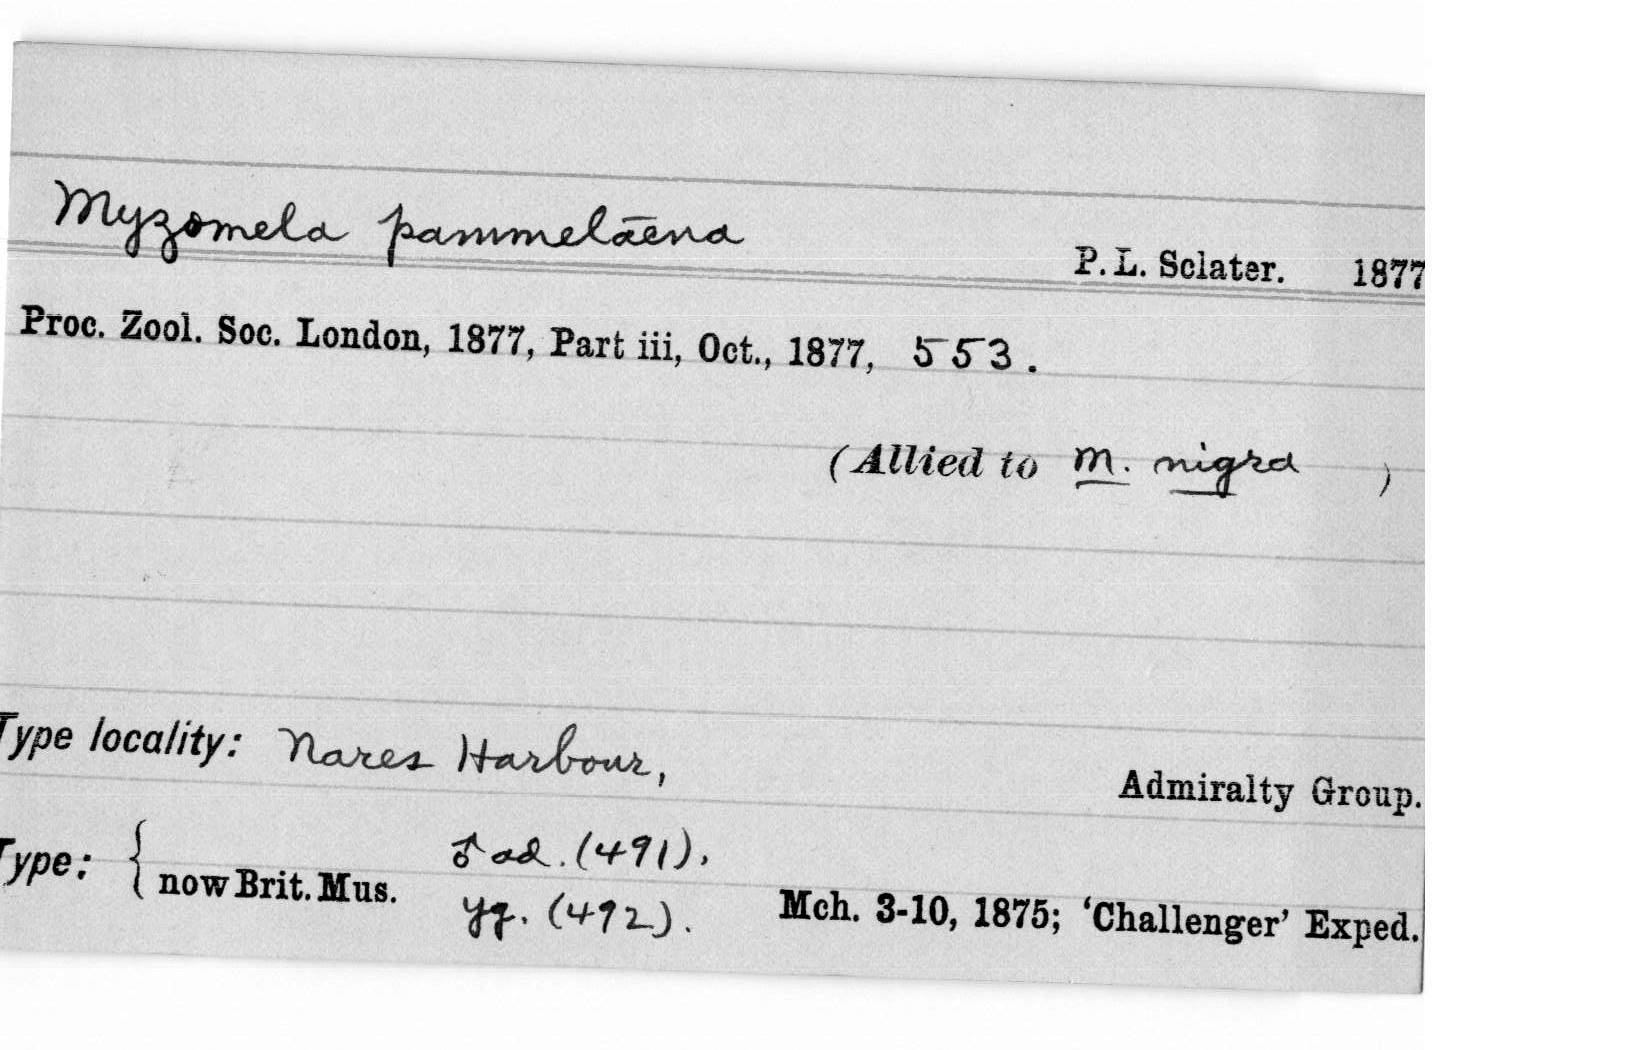 Myzomela pammelāena
P. L. Sclater. 1877
Proc. Zool. Soc. London, 1877, Part iii, Oct., 1877, 553.
(Allied to M. nigra )
Type locality: Nares Harbour, Admiralty Group.
Type: { ♂ ad. (491).
now Brit. Mus. yg. (492). Mch. 3-10, 1875; ‘Challenger’ Exped.